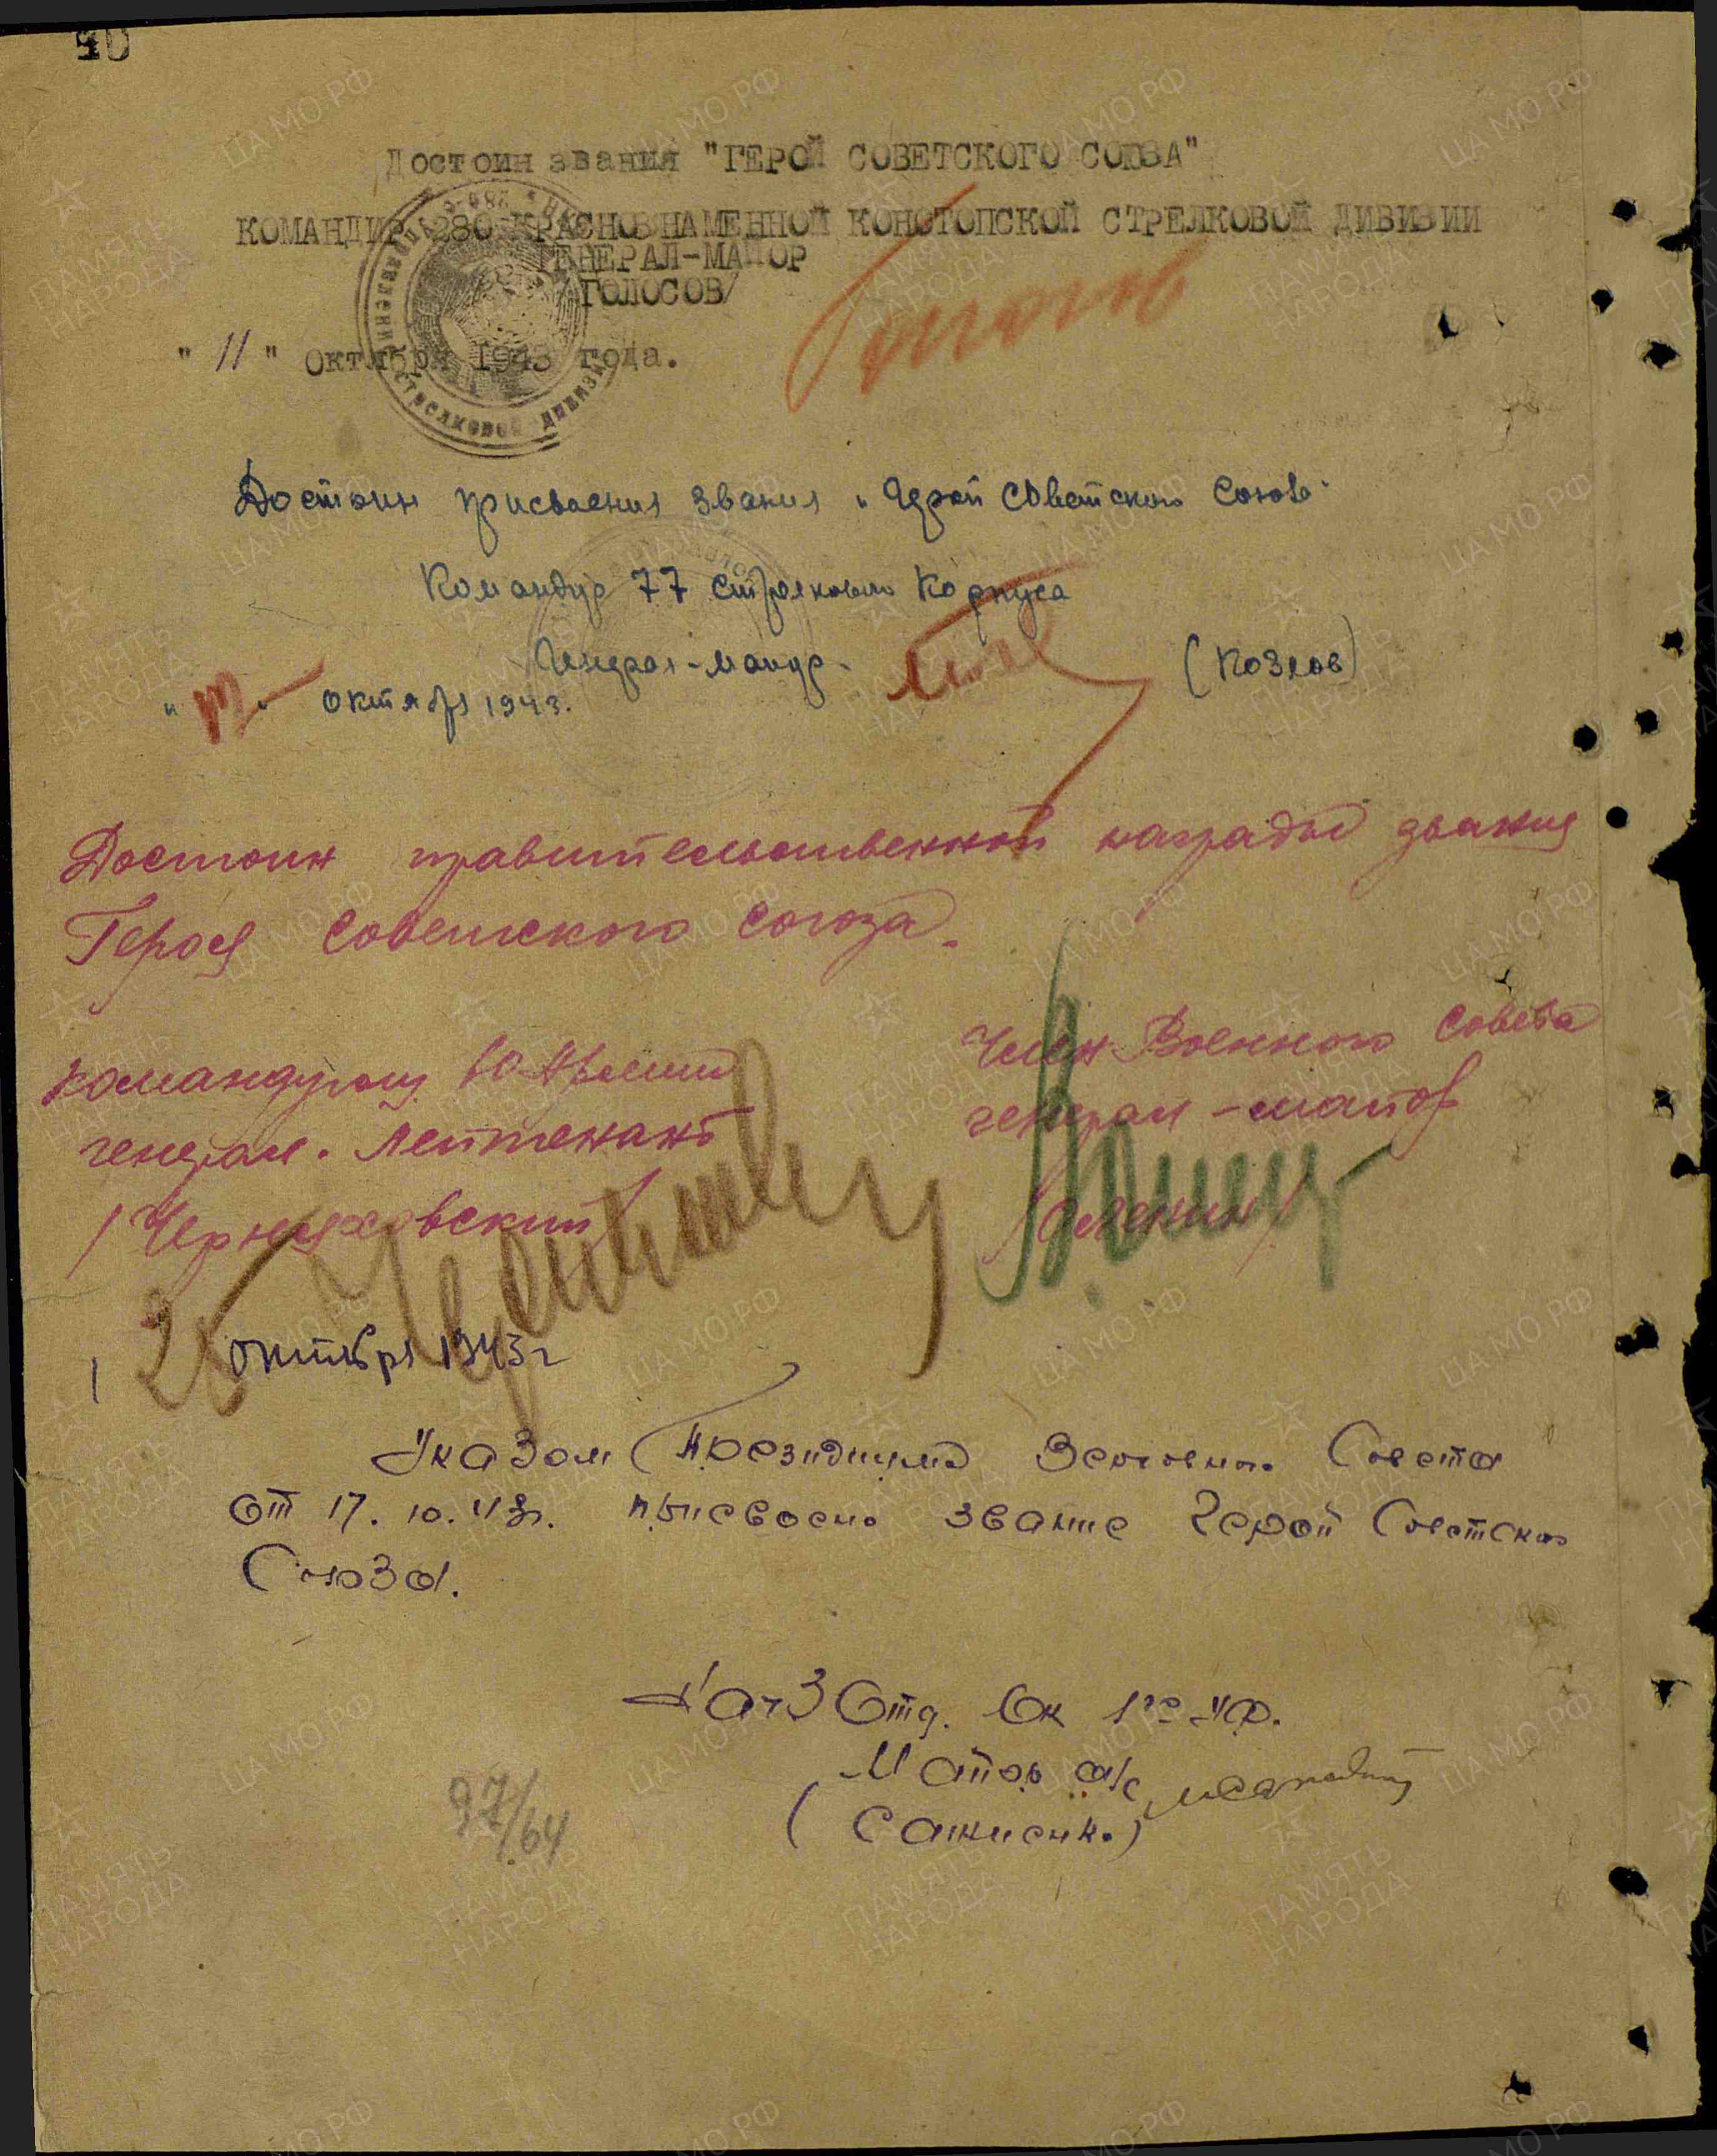 Достоин звания "ГЕРОЙ СОВЕТСКОГО СОЮЗА"
КОМАНДИР 280 КРАСНОЗНАМЕННОЙ КОНОТОПСКОЙ СТРЕЛКОВОЙ ДИВИЗИИ
ГЕНЕРАЛ-МАЙОР
/ГОЛОСОВ/
"11" Октября 1943 года.
Достоин присвоения звания "Герой Советского Союза"
Командир 77 Стрелкового Корпуса
Генерал-майор (Козлов)
" " октября 1943.
Достоин правительственной награды звания
Героя Советского Союза.
Командующ 60 Армии
генерал-лейтенант
/Черняховский/
Член Военного Совета
генерал-майор
/Оленин/
25 октября 1943 г
Указом Президиума Верховного Совета
от 17.10.43г. присвоено звание Герой Советского
Союза.
Нач 3 Отд. Ок 1го УФ.
Майор а/с
(Сажиенко)
97/64
ЦАМО РФ
ПАМЯТЬ НАРОДА